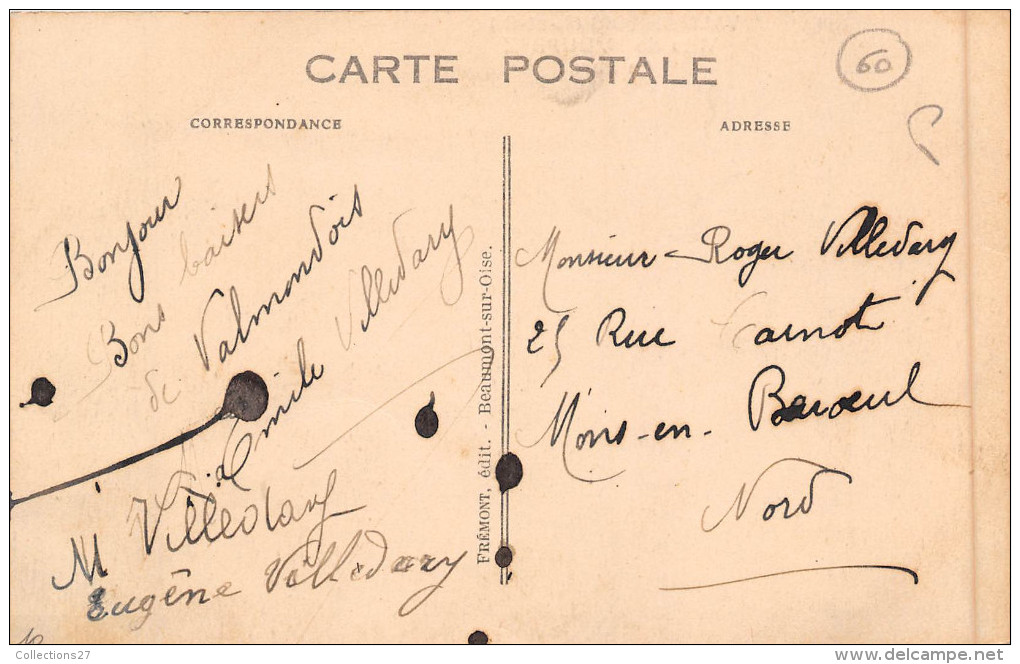 CARTE POSTALE
60
CORRESPONDANCE
ADRESSE
Bonjour
Bons baisers
de Valmondois
Emile Villedary
M Villedary
Eugêne Villedary
FRÉMONT, édit. - Beaumont-sur-Oise.
Monsieur Roger Villedary
25 Rue Carnot
Mons-en-Baroeul
Nord
Collections27
www.delcampe.net